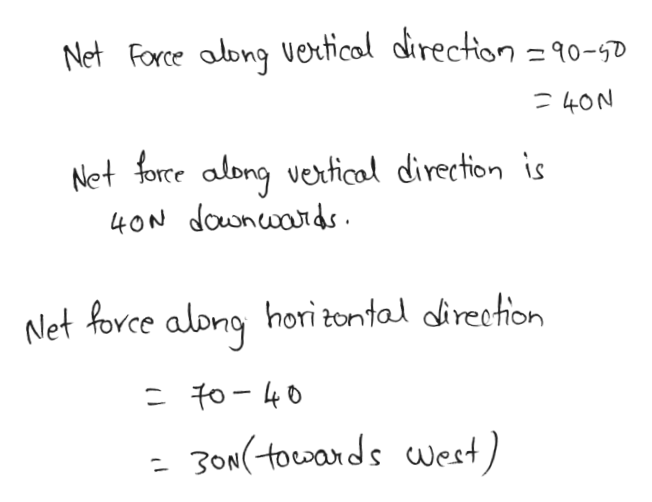 Net Force along vertical direction = 90-50
= 40N
Net force along vertical direction is
40N downwards.
Net force along horizontal direction
= 70 - 40
= 30N (towards west)